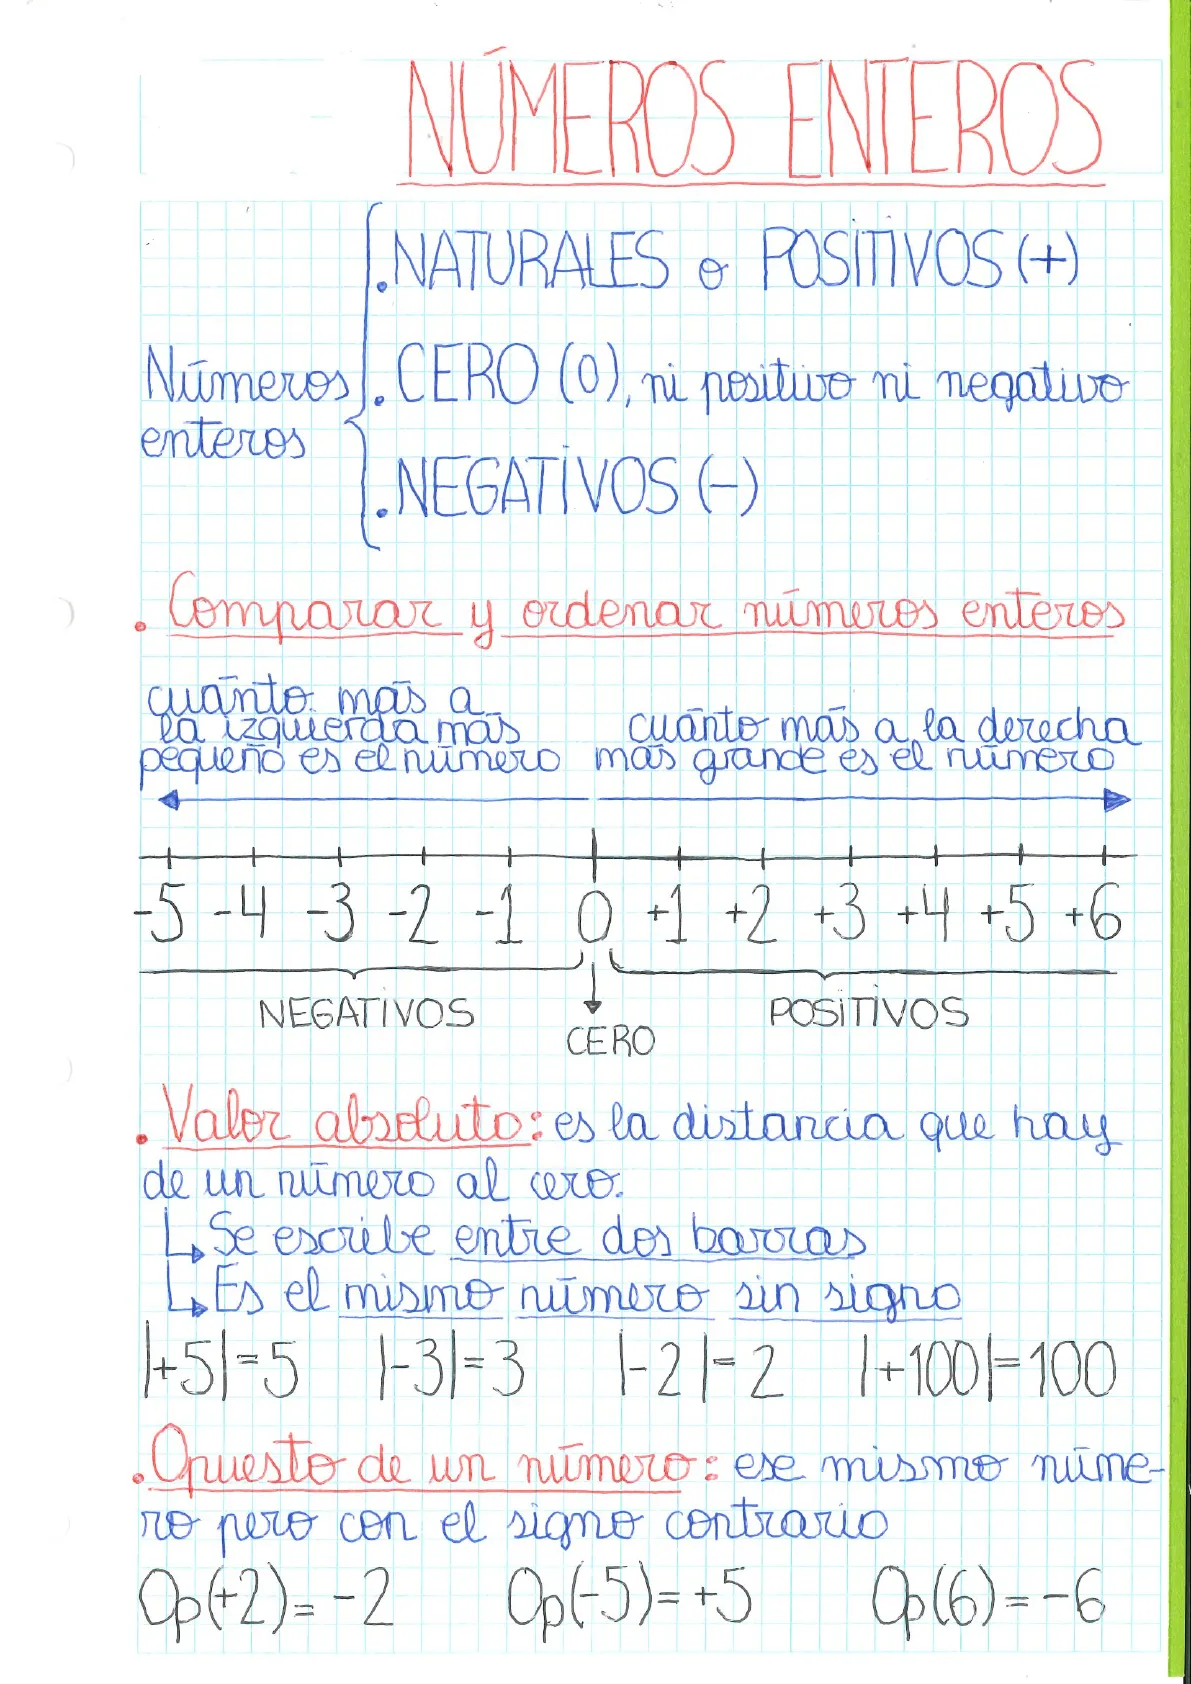 NÚMEROS ENTEROS
.NATURALES o POSITIVOS (+)
Números
enteros
.CERO (0), ni positivo ni negativo
.NEGATIVOS (-)
. Comparar y ordenar números enteros
cuánto más a
la izquierda más
pequeño es el número
cuánto más a la derecha
más grande es el número
-5 -4 -3 -2 -1 0 +1 +2 +3 +4 +5 +6
NEGATIVOS
CERO
POSITIVOS
. Valor absoluto: es la distancia que hay
de un número al cero.
↳ Se escribe entre dos barras
↳ Es el mismo número sin signo
|+5|=5 |-3|=3 |-2|=2 |+100|=100
. Opuesto de un número: ese mismo núme-
ro pero con el signo contrario
Op(+2)=-2 Op(-5)=+5 Op(6)=-6